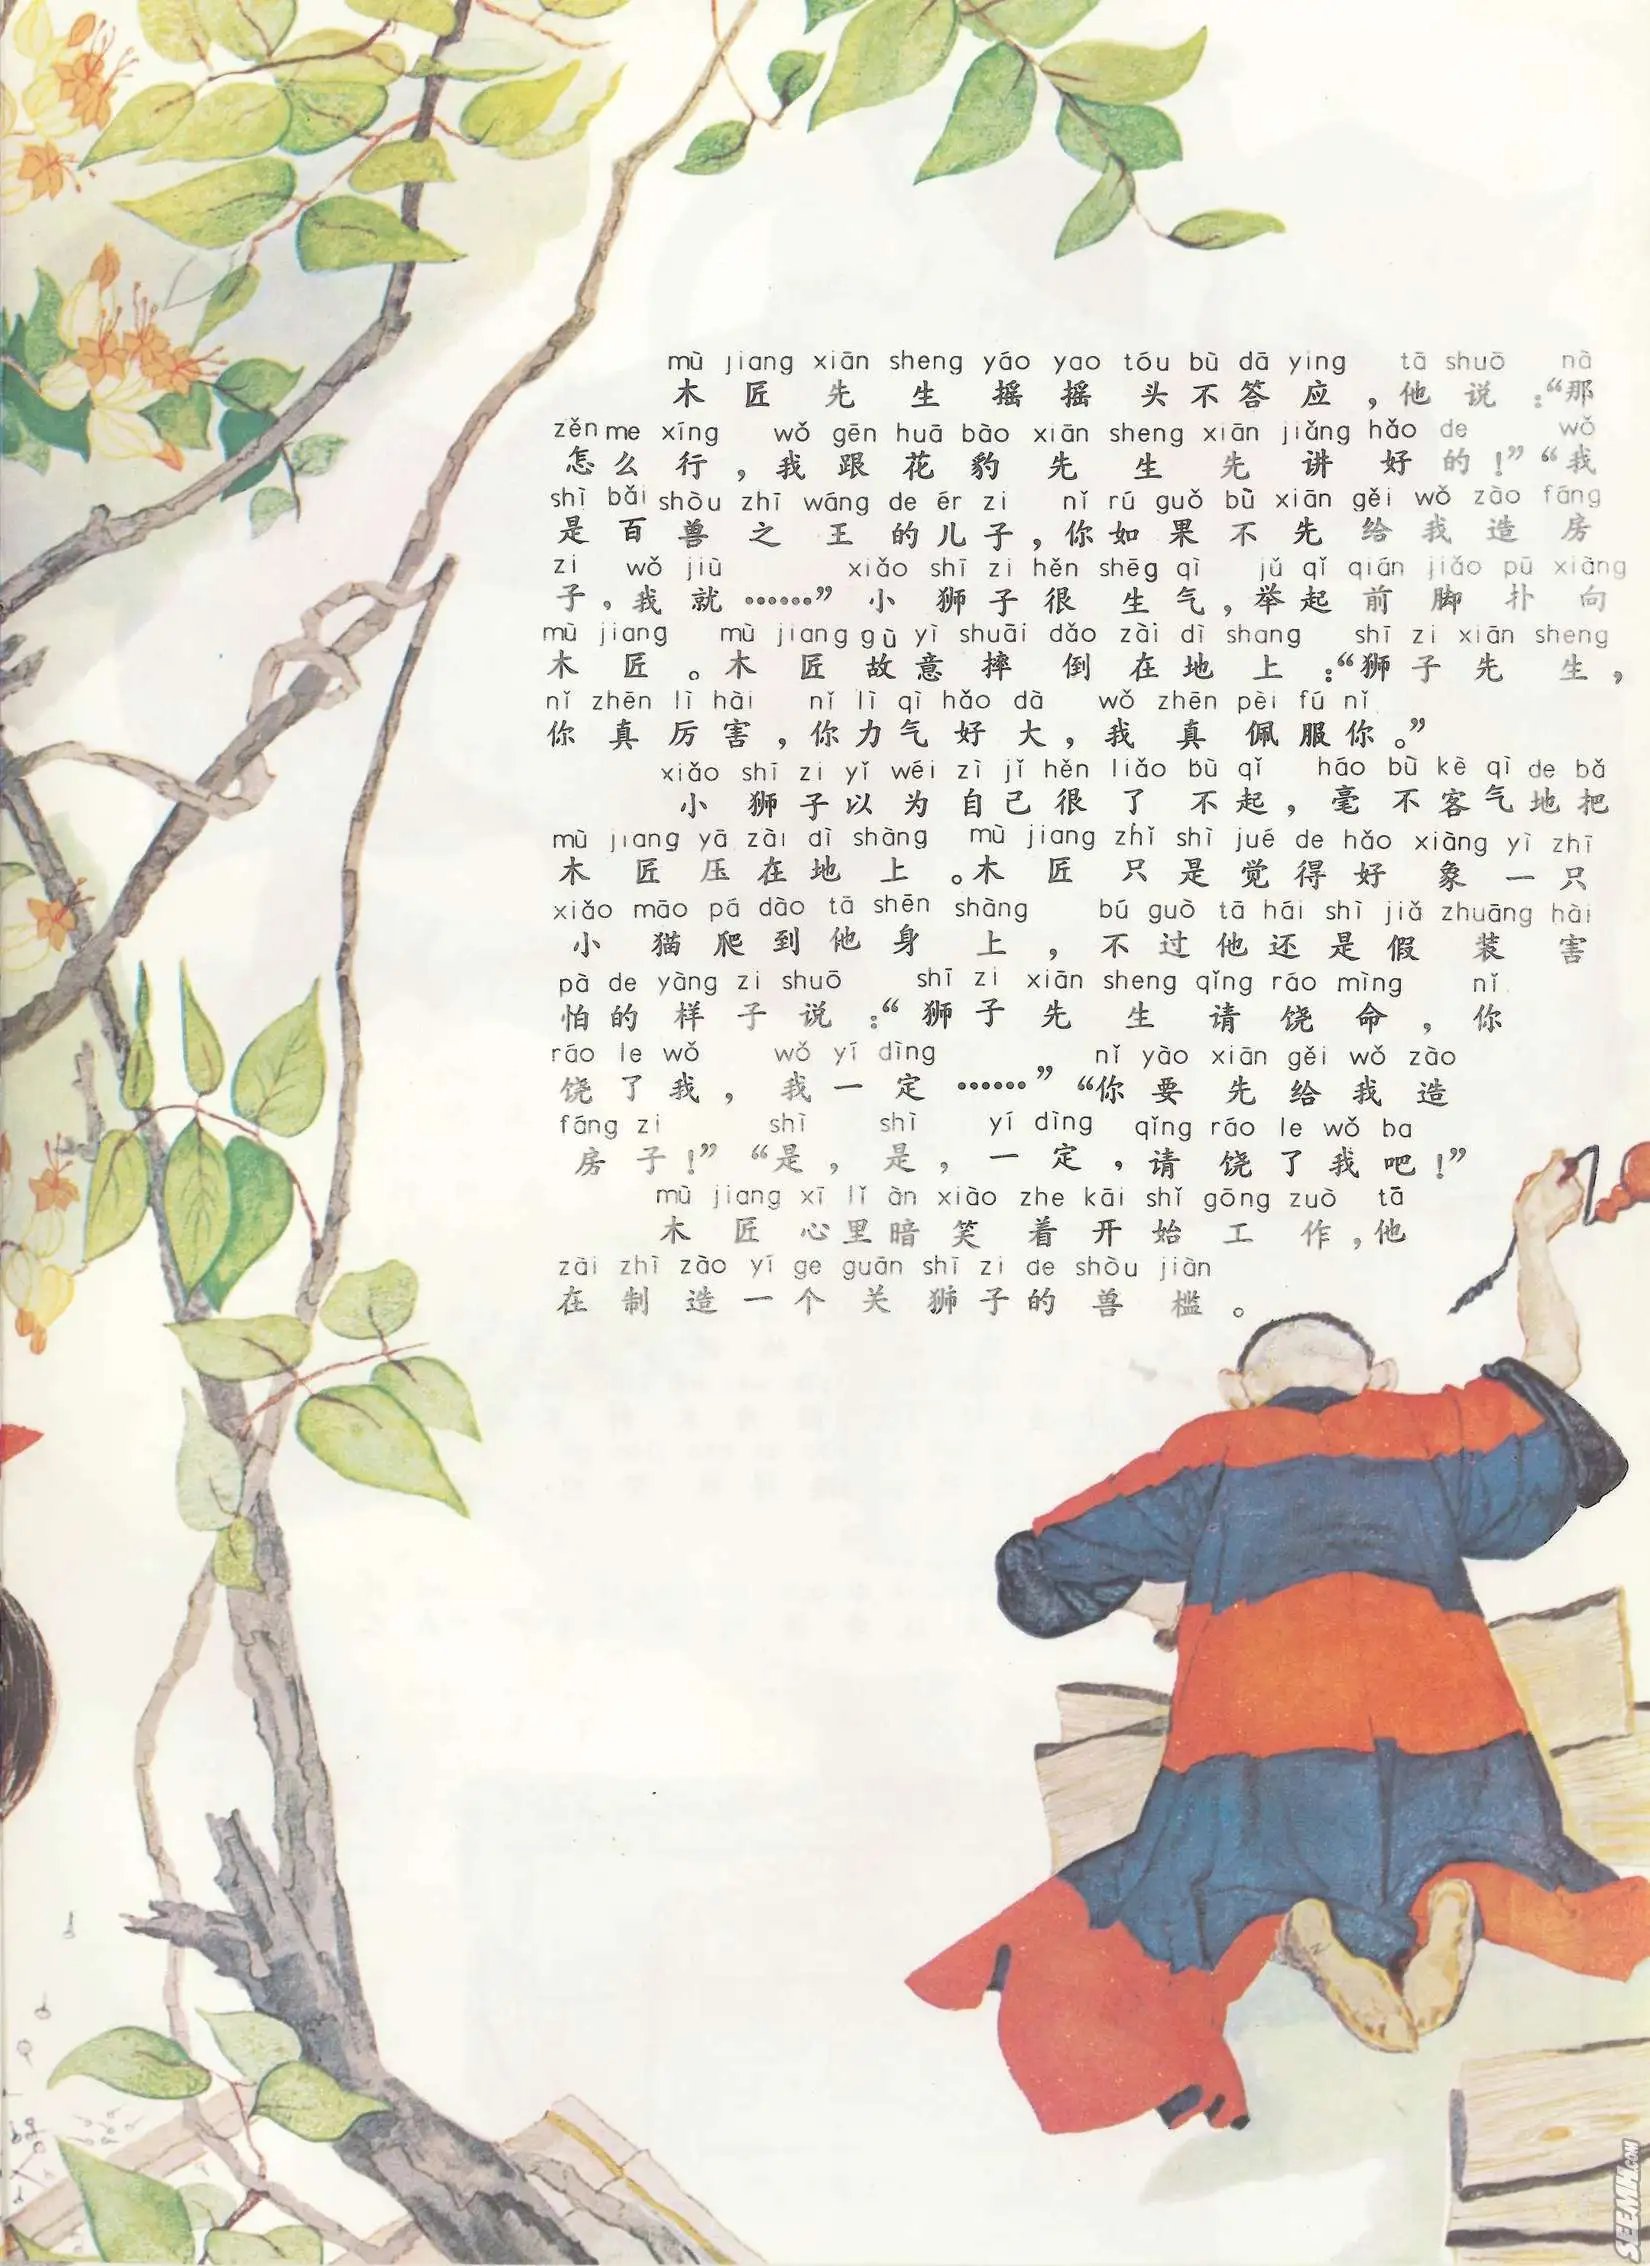 mù jiang xiān sheng yáo yao tóu bù dā ying tā shuō nà
木匠先生摇摇头不答应,他说:“那
zěn me xíng wǒ gēn huā bào xiān sheng xiān jiǎng hǎo de wǒ
怎么行,我跟花豹先生先讲好的!”“我
shì bǎi shòu zhī wáng de ér zi nǐ rú guǒ bù xiān gěi wǒ zào fáng
是百兽之王的儿子,你如果不先给我造房
zi wǒ jiù xiǎo shī zi hěn shēg qì jǔ qǐ qián jiǎo pū xiàng
子,我就……”小狮子很生气,举起前脚扑向
mù jiang mù jiang gù yì shuāi dǎo zài dì shang shī zi xiān sheng
木匠。木匠故意摔倒在地上:“狮子先生,
nǐ zhēn lì hài nǐ lì qì hǎo dà wǒ zhēn pèi fú nǐ
你真厉害,你力气好大,我真佩服你。”
xiǎo shī zi yǐ wéi zì jǐ hěn liǎo bù qǐ háo bù kè qì de bǎ
小狮子以为自己很了不起,毫不客气地把
mù jiang yā zài dì shàng mù jiang zhǐ shì jué de hǎo xiàng yì zhī
木匠压在地上。木匠只是觉得好象一只
xiǎo māo pá dào tā shēn shàng bú guò tā hái shì jiǎ zhuāng hài
小猫爬到他身上,不过他还是假装害
pà de yàng zi shuō shī zi xiān sheng qǐng ráo mìng nǐ
怕的样子说:“狮子先生请饶命,你
ráo le wǒ wǒ yí dìng nǐ yào xiān gěi wǒ zào
饶了我,我一定……”“你要先给我造
fáng zi shì shì yí dìng qǐng ráo le wǒ ba
房子!”“是,是,一定,请饶了我吧!”
mù jiang xī lǐ àn xiào zhe kāi shǐ gōng zuò tā
木匠心里暗笑着开始工作,他
zài zhì zào yí ge guān shī zi de shòu jiàn
在制造一个关狮子的兽槛。
SEEMH.COM